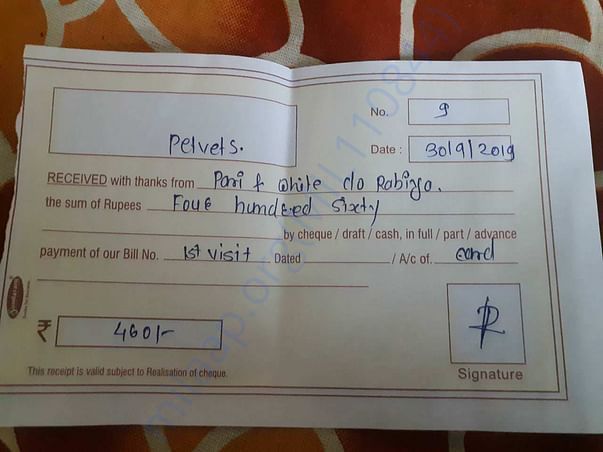 No. 9
Petvets.
Date : 30/9/2019
RECEIVED with thanks from Pari & White c/o Rabiya.
the sum of Rupees Four hundred sixty
by cheque / draft / cash, in full / part / advance
payment of our Bill No. 1st visit Dated / A/c of. card
₹ 460/-
This receipt is valid subject to Realisation of cheque.
Signature